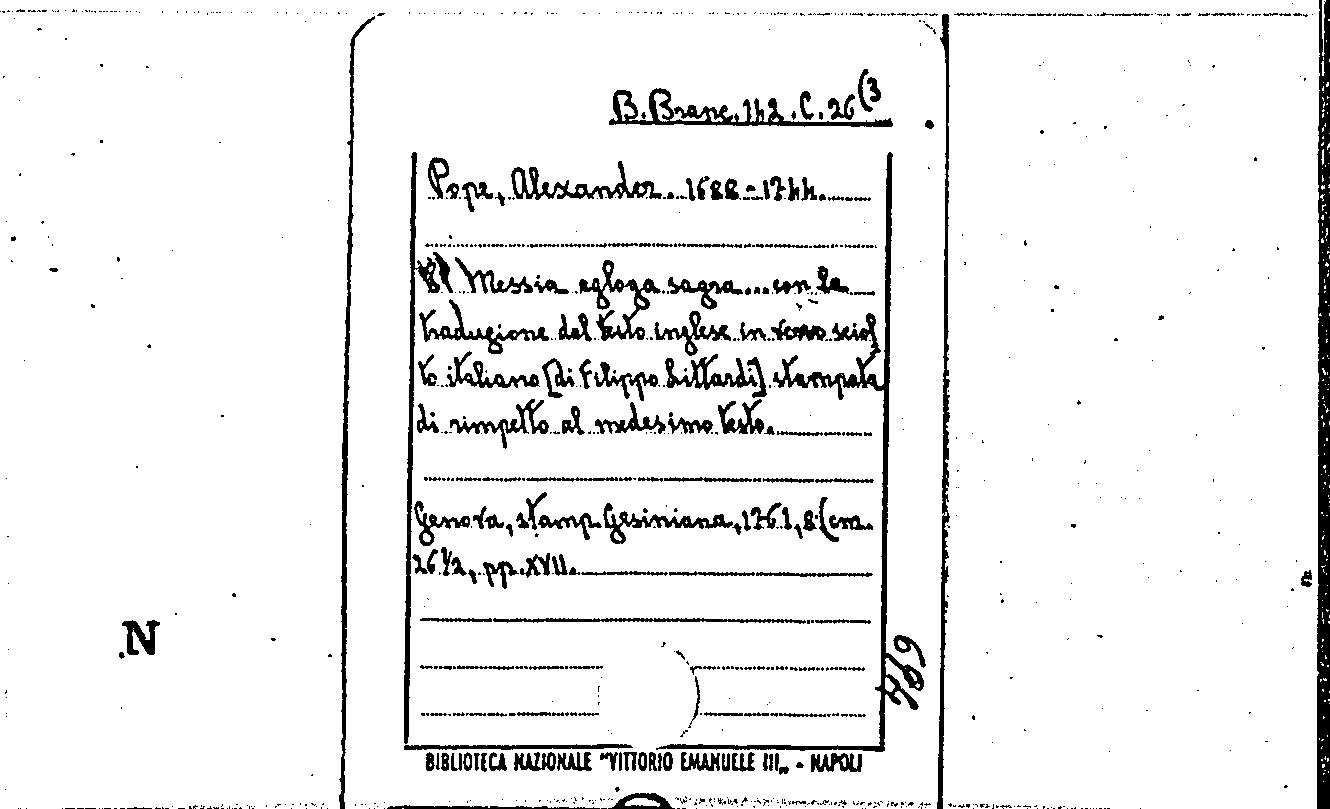 B. Branc. 142. C. 26 (3
Pope, Alexander. 1688-1744.
Il Messia egloga sagra... con la
traduzione del testo inglese in verso sciol
to italiano [di Filippo Littardi] stampata
di rimpetto al medesimo testo.
Genova, stamp. Gesiniana, 1761, 8 (cm.
26 1/2, pp. XVII.
N
BIBLIOTECA NAZIONALE "VITTORIO EMANUELE III„ - NAPOLI